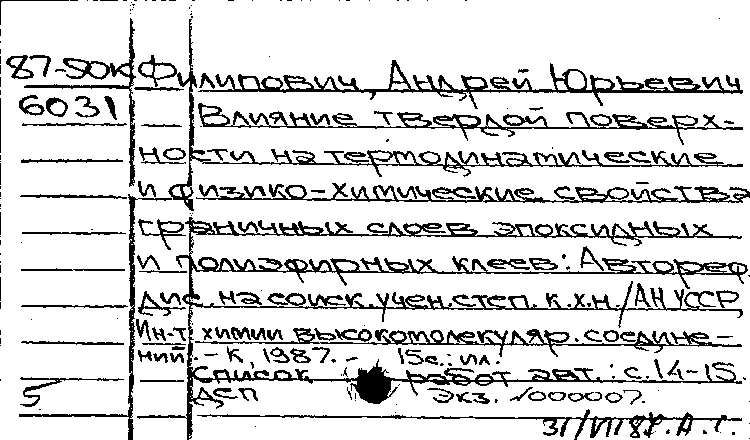 87-50К Филипович, Андрей Юрьевич
6031 Влияние твердой поверх-
ности на термодинамические
и физико-химические свойства
граничных слоев эпоксидных
и полиэфирных клеев: Автореф.
дис. на соиск. учен. степ. к.х.н. /АН УССР,
Ин-т химии высокомолекуляр. соедине-
ний. - К, 1987. - 15с.: ил.
Список работ авт.: с. 14-15.
5 ДСП Экз. №000007.